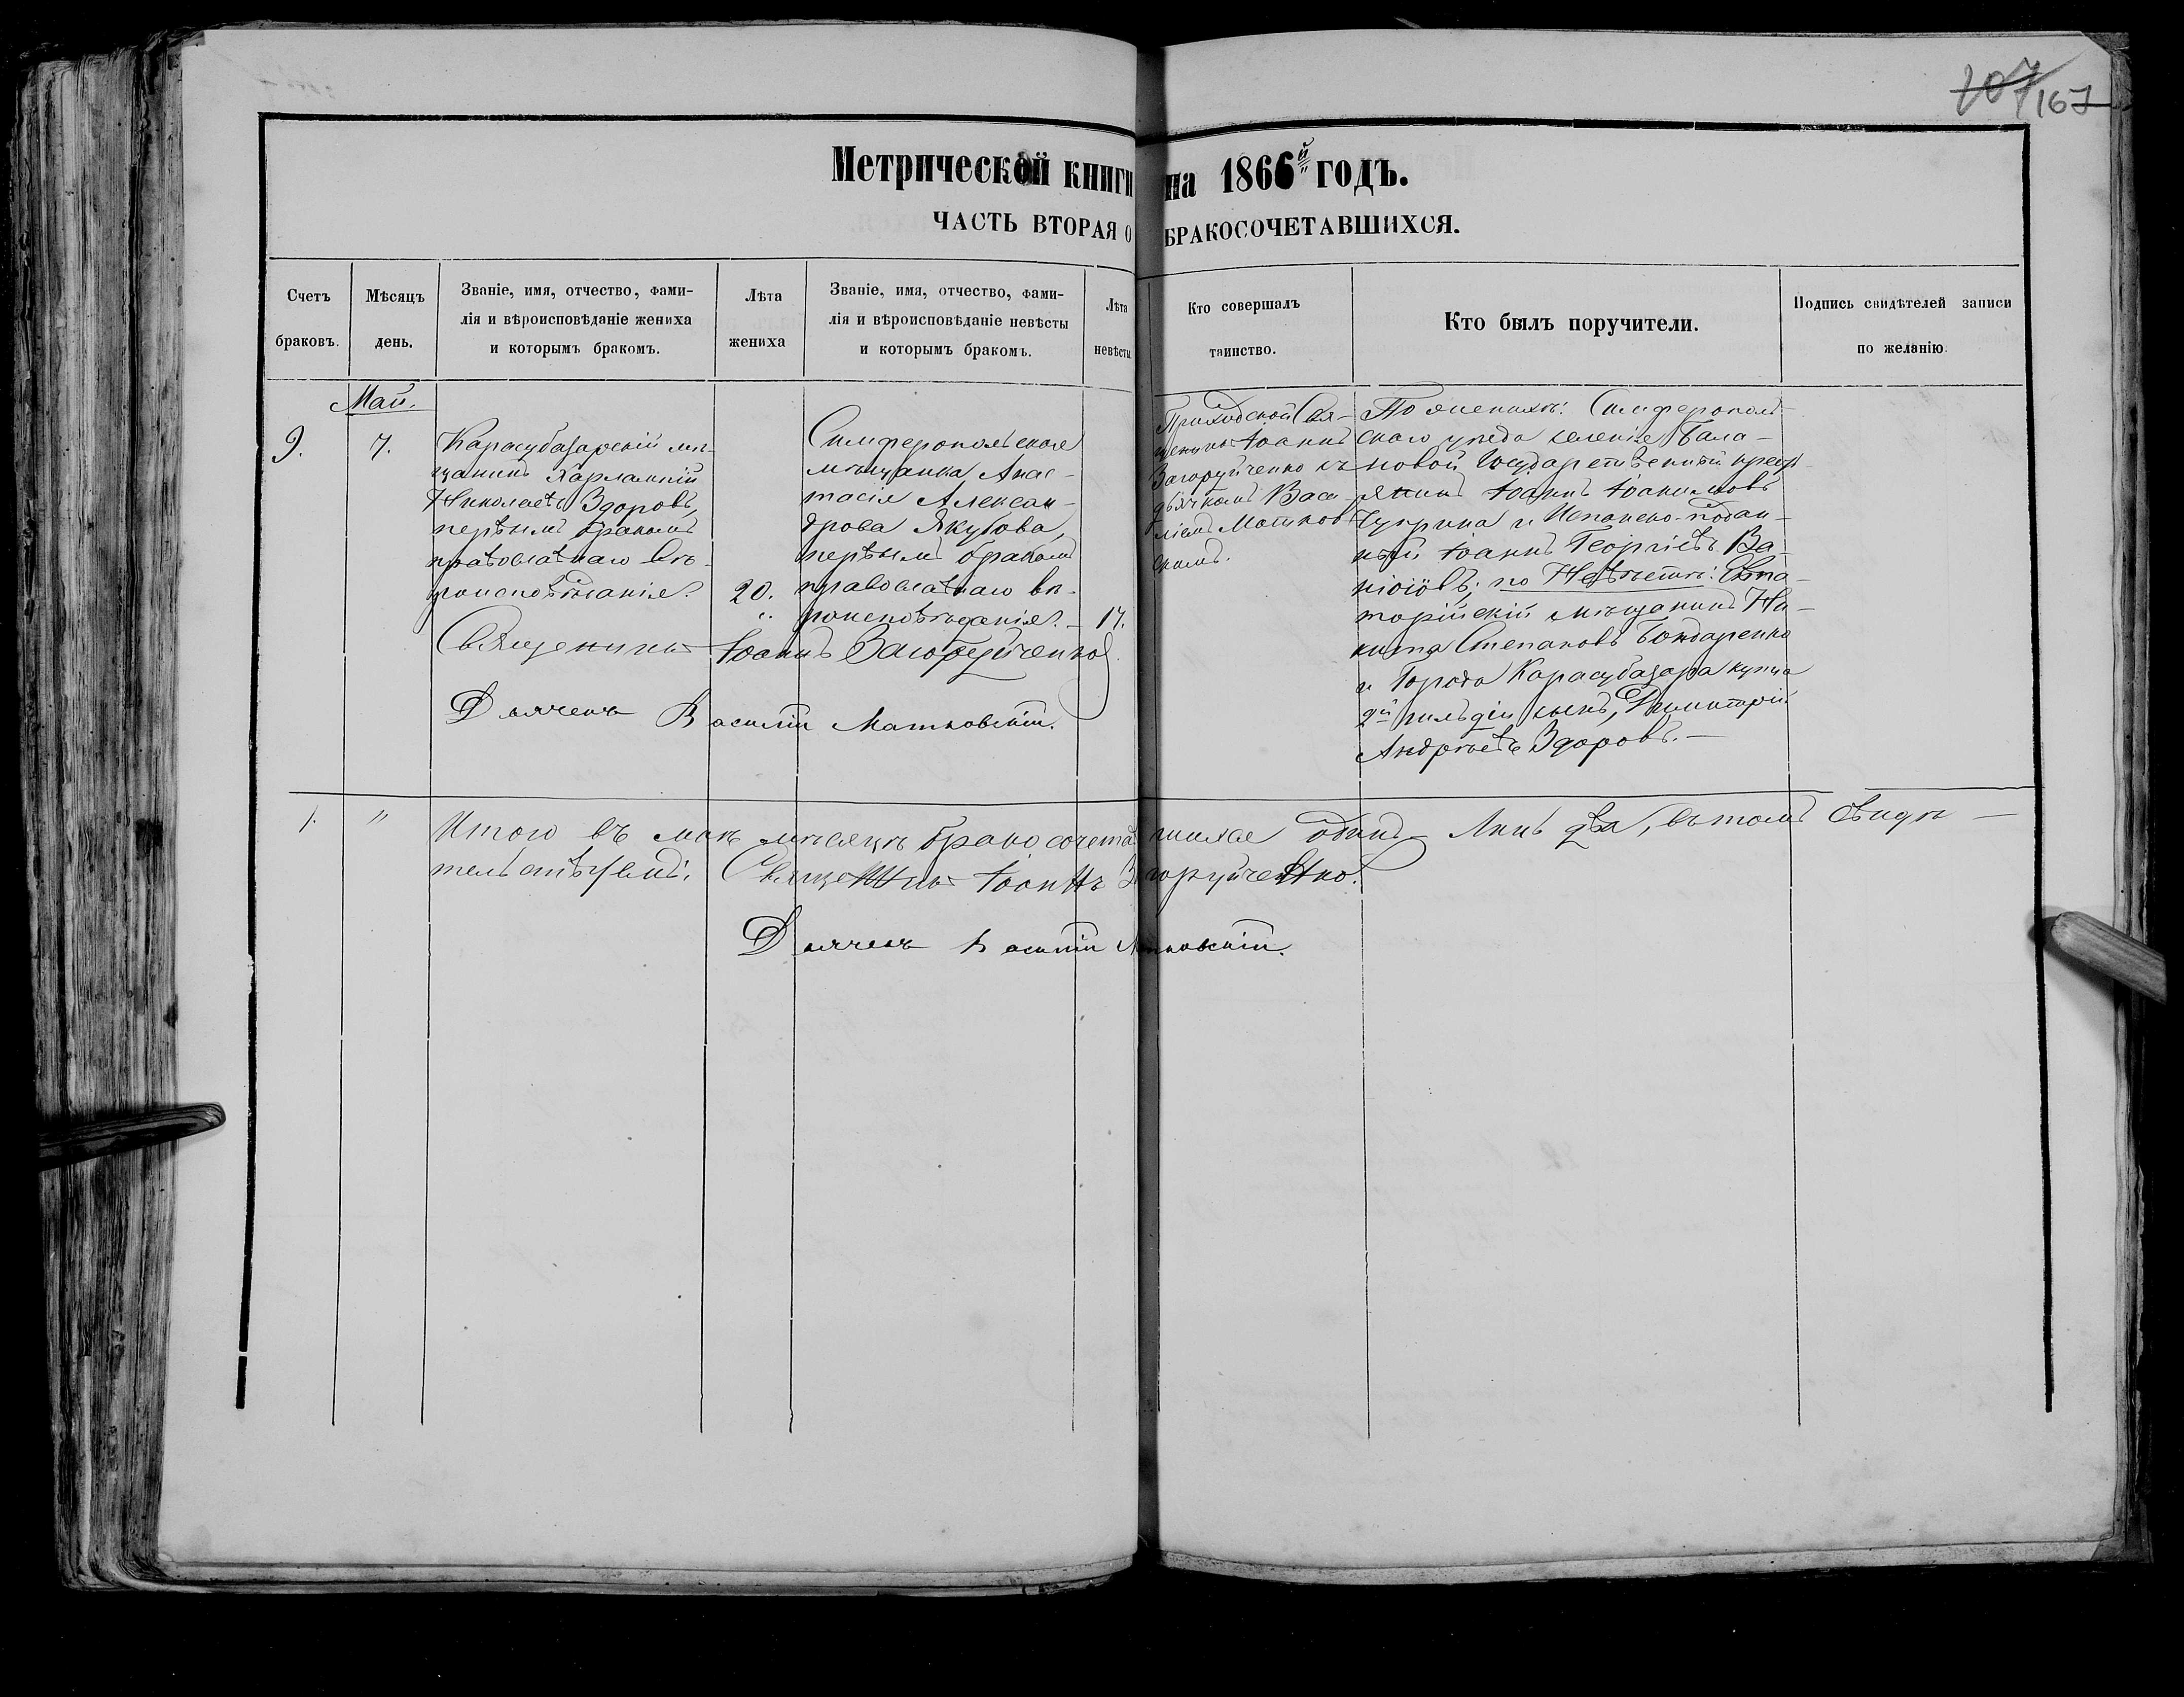 207 167
Метрической книги на 1866й годъ.
ЧАСТЬ ВТОРАЯ О БРАКОСОЧЕТАВШИХСЯ.
Счетъ
браковъ.
Мѣсяцъ
день.
Званіе, имя, отчество, фами-
лія и вѣроисповѣданіе жениха
и которымъ бракомъ.
Лѣта
жениха
Званіе, имя, отчество, фами-
лія и вѣроисповѣданіе невѣсты
и которымъ бракомъ.
Лѣта
невѣсты.
Кто совершалъ
таинство.
Кто былъ поручители.
Подпись свидѣтелей записи
по желанію.
Май.
9.
7.
Карасубазарскій мѣ-
щанинъ Харлампій
Николаевъ Здоровъ,
первымъ бракомъ
православнаго вѣ-
роисповѣданія.
20.
Симферопольская
мѣщанка, Анас-
тасія Алексан-
дрова Якубова,
первымъ бракомъ
православнаго вѣ-
роисповѣданія.
17.
Приходской Свя-
щеникъ Іоаннъ
Загоруйченко съ
дьячкомъ Васи-
ліемъ Матков-
скимъ.
По женихѣ: Симферополь-
скаго уѣзда селенія Бала-
новой Государственный крест-
янинъ Іоаннъ Іоакимовъ
Чуприна и Испанско-подан-
ный Іоаннъ Георгіевъ
по Невѣстѣ: Евпа-
торійскій мѣщанинъ Ни-
кита Степановъ Бондаренко
и Города Карасубазара купца
2й гильдіи сынъ, Димитрій
Андреевъ Здоровъ. —
Священикъ Іоаннъ Загоруйченко
Дьячекъ Василій Матковскій.
1. "
Итого въ маѣ мѣсяцѣ бракосочетавшихся одинъ Лицъ два, въ томъ свидѣ-
тельствуемъ: Священникъ Іоаннъ Загоруйченко.
Дьячекъ Василій Матковскій.